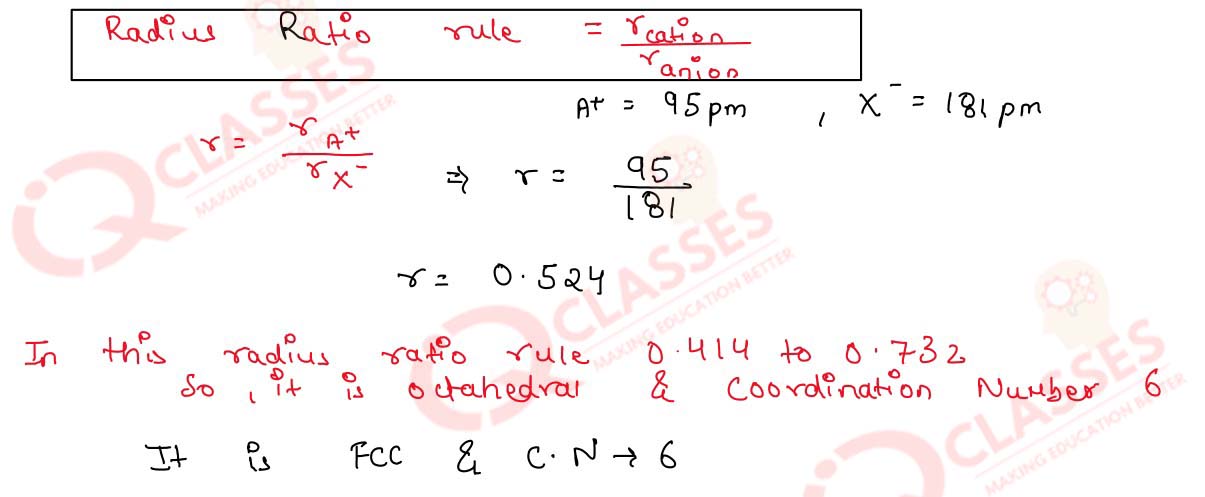 Radius Ratio rule = r_cation / r_anion
A+ = 95 pm , X⁻ = 181 pm
r = r_A+ / r_X⁻ ⇒ r = 95 / 181
r = 0.524
In this radius ratio rule 0.414 to 0.732
So, it is octahedral & coordination Number 6
It is FCC & C.N → 6
IQ CLASSES
MAKING EDUCATION BETTER
IQ CLASSES
MAKING EDUCATION BETTER
IQ CLASSES
MAKING EDUCATION BETTER